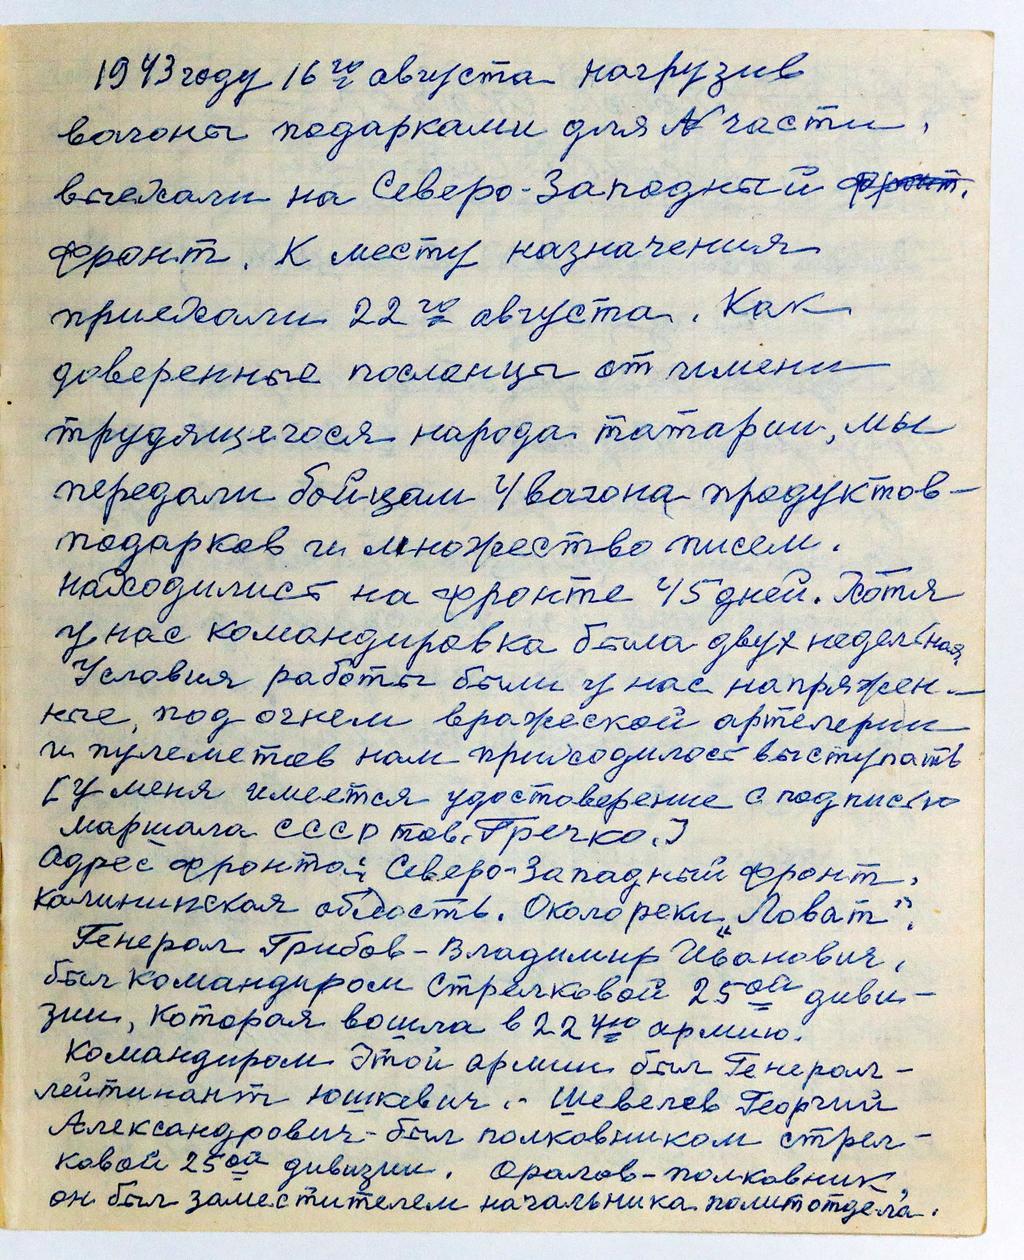 1943 году 16го августа нагрузив
вагоны подарками для N части,
выехали на Северо-Западный фронт.
фронт. К месту назначения
приехали 22го августа. Как
доверенные посланцы от имени
трудящегося народа татарии, мы
передали бойцам 4 вагона продуктов-
подарков и множество писем.
находились на фронте 45 дней. Хотя
у нас командировка была двух недельная,
Условия работы были у нас напряжен-
ные, под огнем вражеской артелерии
и пулеметов нам приходилось выступать
[у меня имеется удостоверение с подписью
маршала СССР тов. Гречко.]
Адрес фронта: Северо-Западный фронт,
Калининская область. Около реки „Ловат".
Генерал Грибов-Владимир Иванович,
был командиром Стрелковой 25ой диви-
зии, которая вошла в 22ую армию.
Командиром этой армии был Генерал-
лейтинант Юшкевич. - Шевелев Георгий
Александрович-был полковником стрел-
ковой 25ой дивизии. Оралов-полковник,
он был заместителем начальника политотдела.